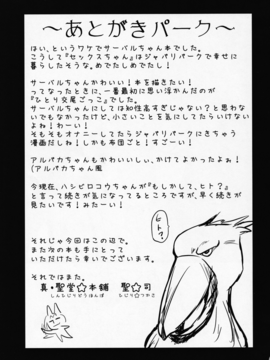 ～あとがきパーク～
はい、というワケでサーバルちゃん本でした。
こうして『セックスちゃん』はジャパリパークで幸せに
暮らしたそうな。めでたしめでたし！
サーバルちゃんかわいい！本を描きたい！
ってなったときに、一番最初に思い浮かんだのが
『ひとり交尾ごっこ』でした。
サーバルちゃんにしては知性高すぎじゃない？と思わな
いでもなかったけど、小さいことを気にしてたらいけない
よね！わーい！
そもそもオナニーしてたらジャパリパークにきちゃう
漫画だしね！しかも布団ごと！すごーい！
アルパカちゃんもかわいいしぃ、かけてよかったよぉ！
(アルパカちゃん風
今現在、ハシビロコウちゃんが『もしかして、ヒト？』
と言って続きが気になってるところですが、早く続きが
見たいです！みたーい！
それじゃ今回はこの辺で。
また次の本も手にとって
いただけたら幸いでございます。
それではまた。
ヒト？
真・聖堂☆本舗　聖☆司
しんせいどうほんぽ　ひじり☆つかさ